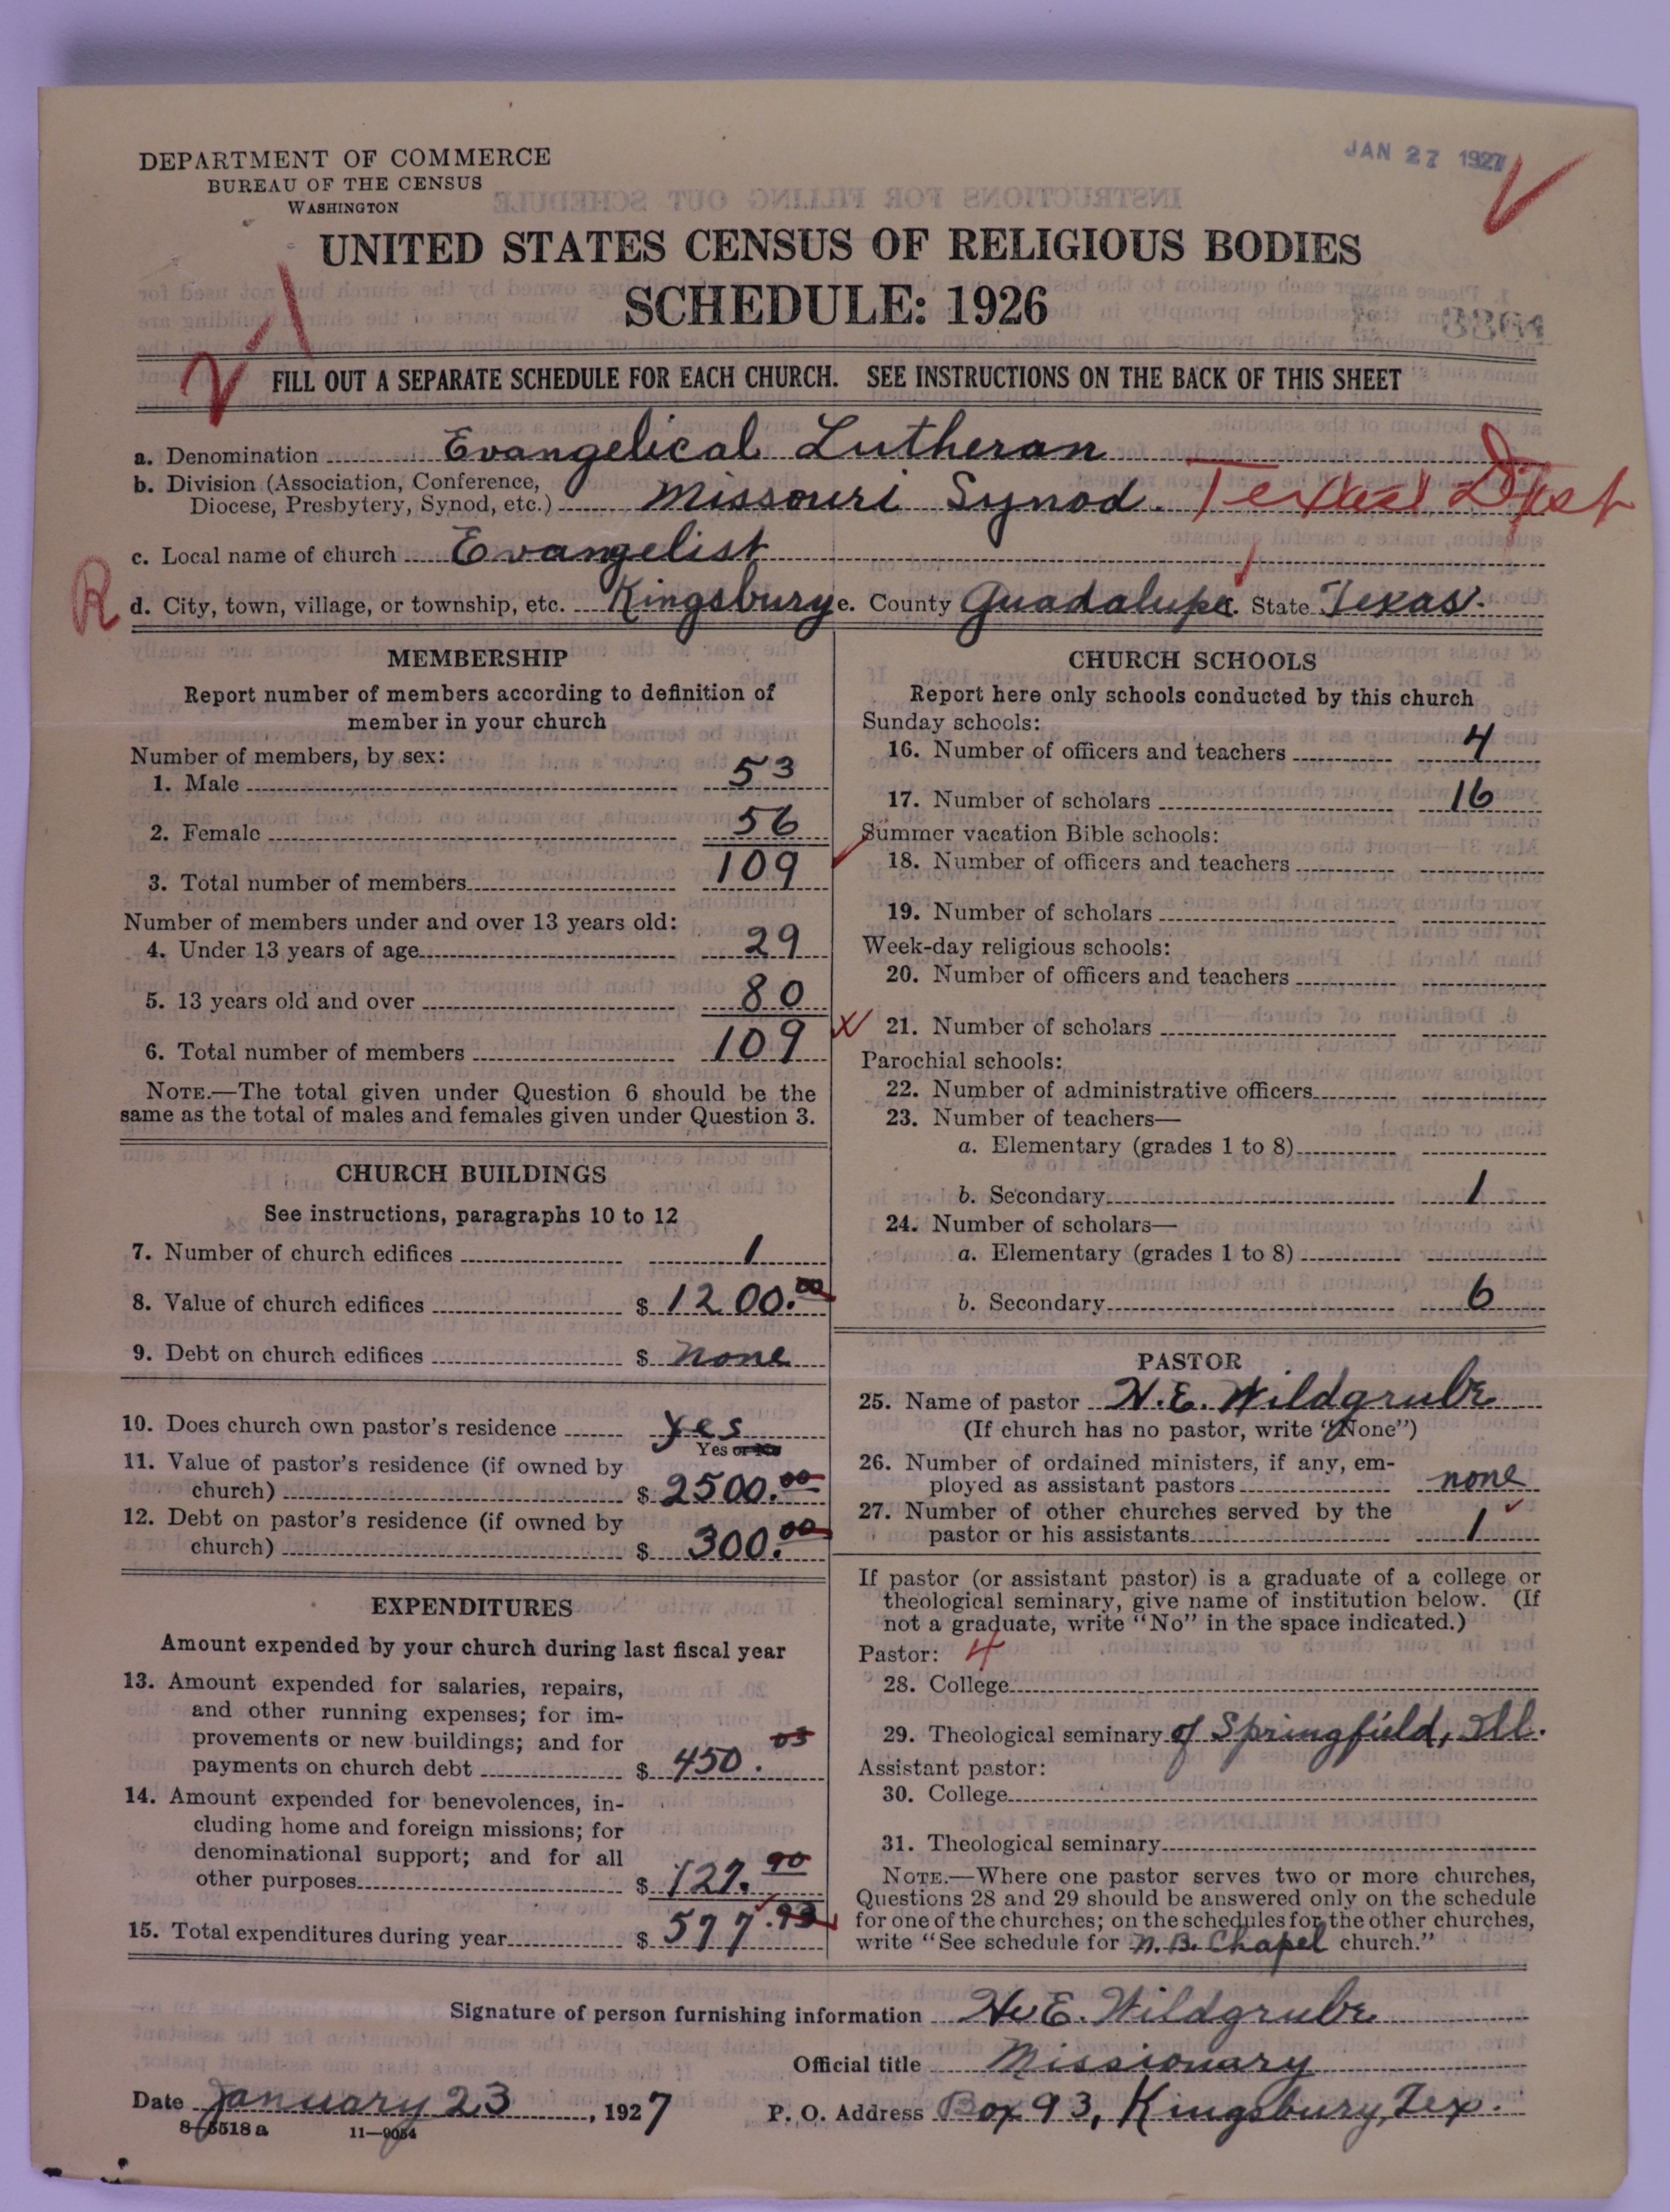 JAN 27 1927
DEPARTMENT OF COMMERCE
BUREAU OF THE CENSUS
WASHINGTON
UNITED STATES CENSUS OF RELIGIOUS BODIES
SCHEDULE: 1926
FILL OUT A SEPARATE SCHEDULE FOR EACH CHURCH. SEE INSTRUCTIONS ON THE BACK OF THIS SHEET
a. Denomination Evangelical Lutheran
b. Division (Association, Conference,
Diocese, Presbytery, Synod, etc.) Missouri Synod. Texas Dist
c. Local name of church Evangelist
R
d. City, town, village, or township, etc. Kingsbury e. County Guadalupe. State Texas.
MEMBERSHIP
Report number of members according to definition of
member in your church
Number of members, by sex:
1. Male 53
2. Female 56
3. Total number of members 109
Number of members under and over 13 years old:
4. Under 13 years of age 29
5. 13 years old and over 80
6. Total number of members 109
NOTE.—The total given under Question 6 should be the
same as the total of males and females given under Question 3.
CHURCH BUILDINGS
See instructions, paragraphs 10 to 12
7. Number of church edifices 1
8. Value of church edifices $ 1200.00
9. Debt on church edifices $ none
10. Does church own pastor's residence yes
Yes or No
11. Value of pastor's residence (if owned by
church) $ 2500.00
12. Debt on pastor's residence (if owned by
church) $ 300.00
EXPENDITURES
Amount expended by your church during last fiscal year
13. Amount expended for salaries, repairs,
and other running expenses; for im-
provements or new buildings; and for
payments on church debt $ 450.03
14. Amount expended for benevolences, in-
cluding home and foreign missions; for
denominational support; and for all
other purposes $ 127.90
15. Total expenditures during year $ 577.93
CHURCH SCHOOLS
Report here only schools conducted by this church
Sunday schools:
16. Number of officers and teachers 4
17. Number of scholars 16
Summer vacation Bible schools:
18. Number of officers and teachers
19. Number of scholars
Week-day religious schools:
20. Number of officers and teachers
21. Number of scholars
Parochial schools:
22. Number of administrative officers
23. Number of teachers—
a. Elementary (grades 1 to 8)
b. Secondary 1
24. Number of scholars—
a. Elementary (grades 1 to 8)
b. Secondary 6
PASTOR
25. Name of pastor H.E. Wildgrube
(If church has no pastor, write "None")
26. Number of ordained ministers, if any, em-
ployed as assistant pastors none
27. Number of other churches served by the
pastor or his assistants 1
If pastor (or assistant pastor) is a graduate of a college or
theological seminary, give name of institution below. (If
not a graduate, write "No" in the space indicated.)
Pastor: 4
28. College
29. Theological seminary of Springfield, Ill.
Assistant pastor:
30. College
31. Theological seminary
NOTE.—Where one pastor serves two or more churches,
Questions 28 and 29 should be answered only on the schedule
for one of the churches; on the schedules for the other churches,
write "See schedule for N. B. Chapel church."
Signature of person furnishing information H E. Wildgrube
Official title Missionary
Date January 23, 1927 P. O. Address Box 93, Kingsbury, Tex.
8-5518a 11—9054